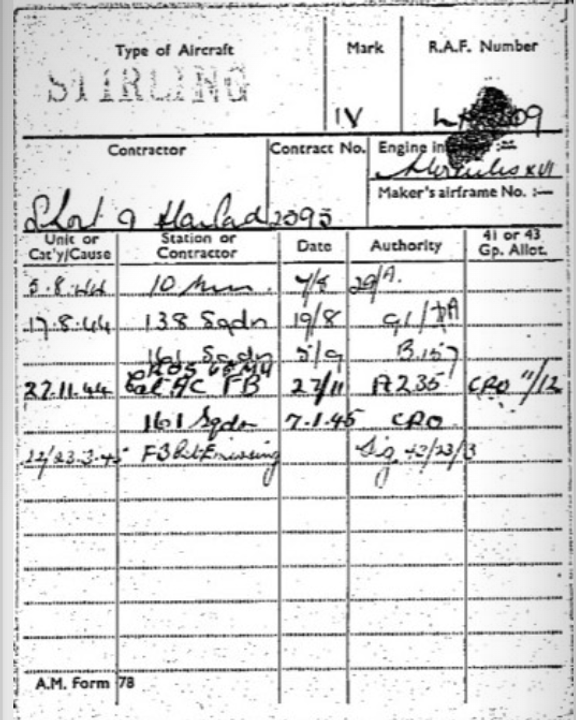 Type of Aircraft Mark R.A.F. Number
STIRLING IV
Contractor Contract No. Engine
Hercules XVI
Maker's airframe No. :—
Short & Harland 2095
Unit or Cat'y/Cause Station or Contractor Date Authority 41 or 43 Gp. Allot.
5.8.44 10 7/8 29/A.
17.8.44 138 Sqdn 19/8 41/
161 Sqdn 5/9 B.157
22.11.44 Cat AC FB 22/11 A235 CRO 11/12
161 Sqdn 7.1.45 CRO
22/23.3.45 FB Missing Sig 23/3
A.M. Form 78